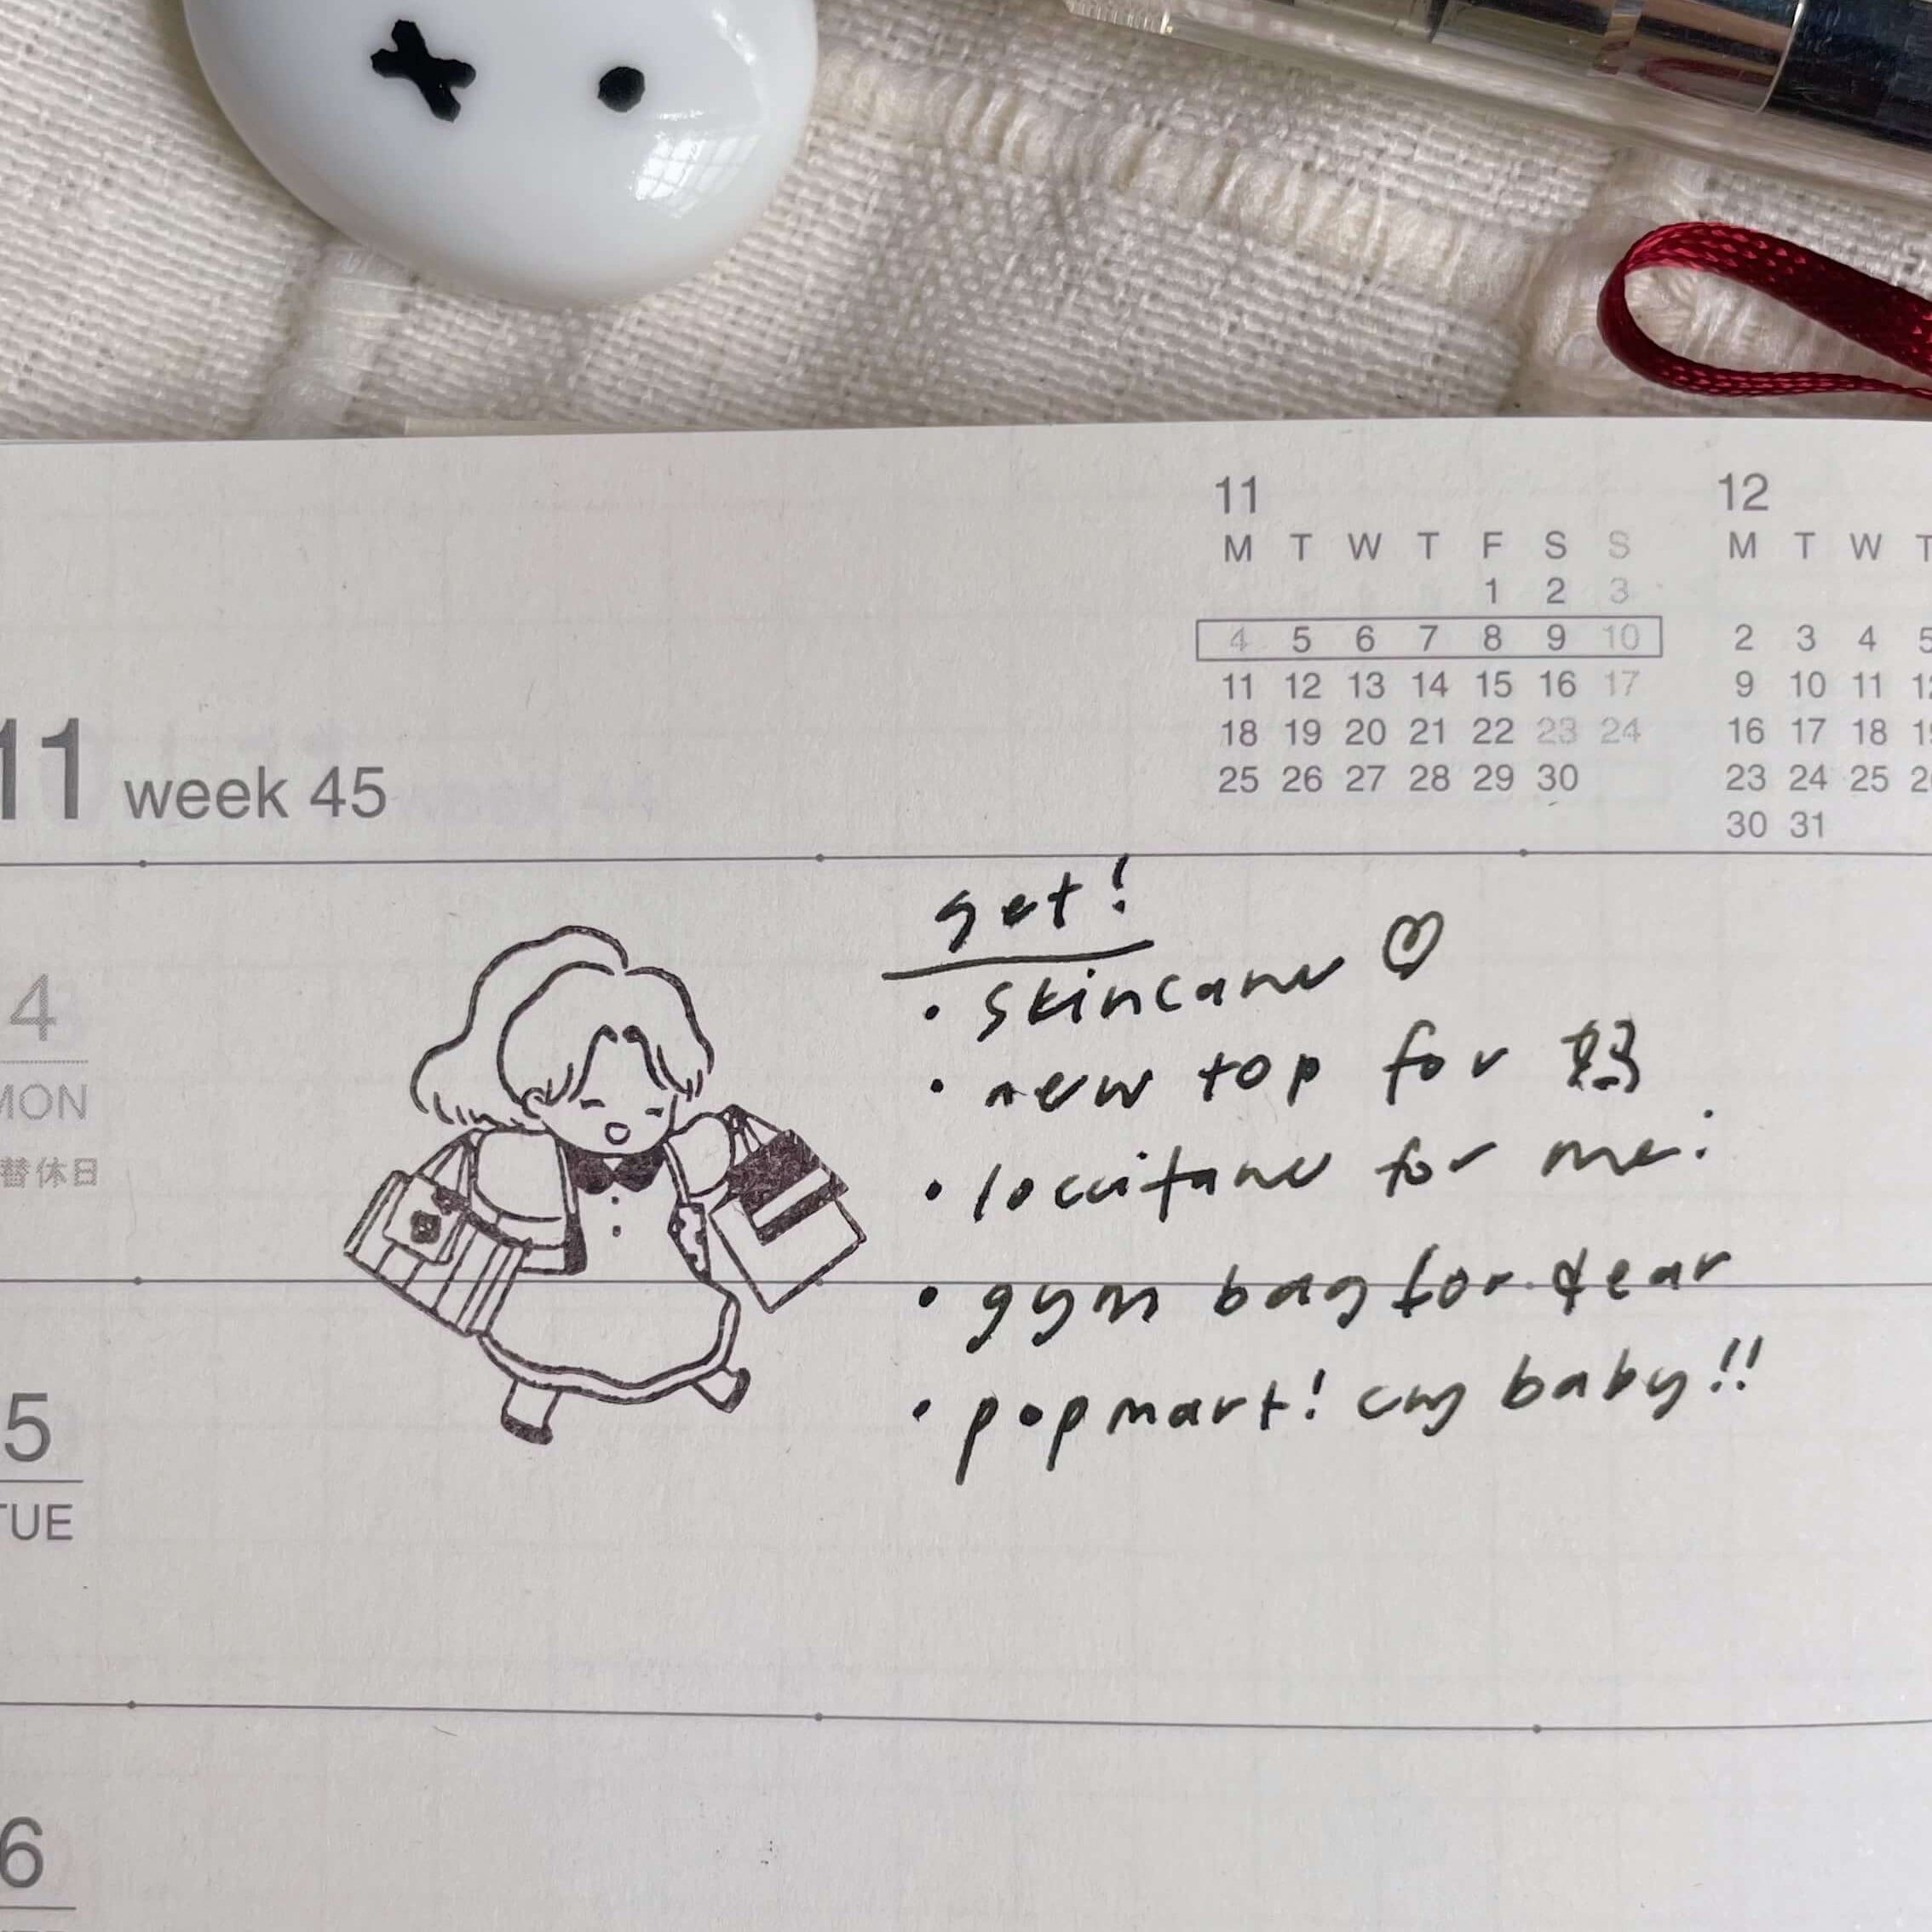 11
M T W T F S S
1 2 3
4 5 6 7 8 9 10
11 12 13 14 15 16 17
18 19 20 21 22 23 24
25 26 27 28 29 30
12
M T W T
2 3 4 5
9 10 11
16 17 18
23 24 25
30 31
11 week 45
4
MON
替休日
get!
• skincare ♡
• new top for 妈
• loccitane for me:
• gym bag for dear
• popmart! cry baby!!
5
TUE
6